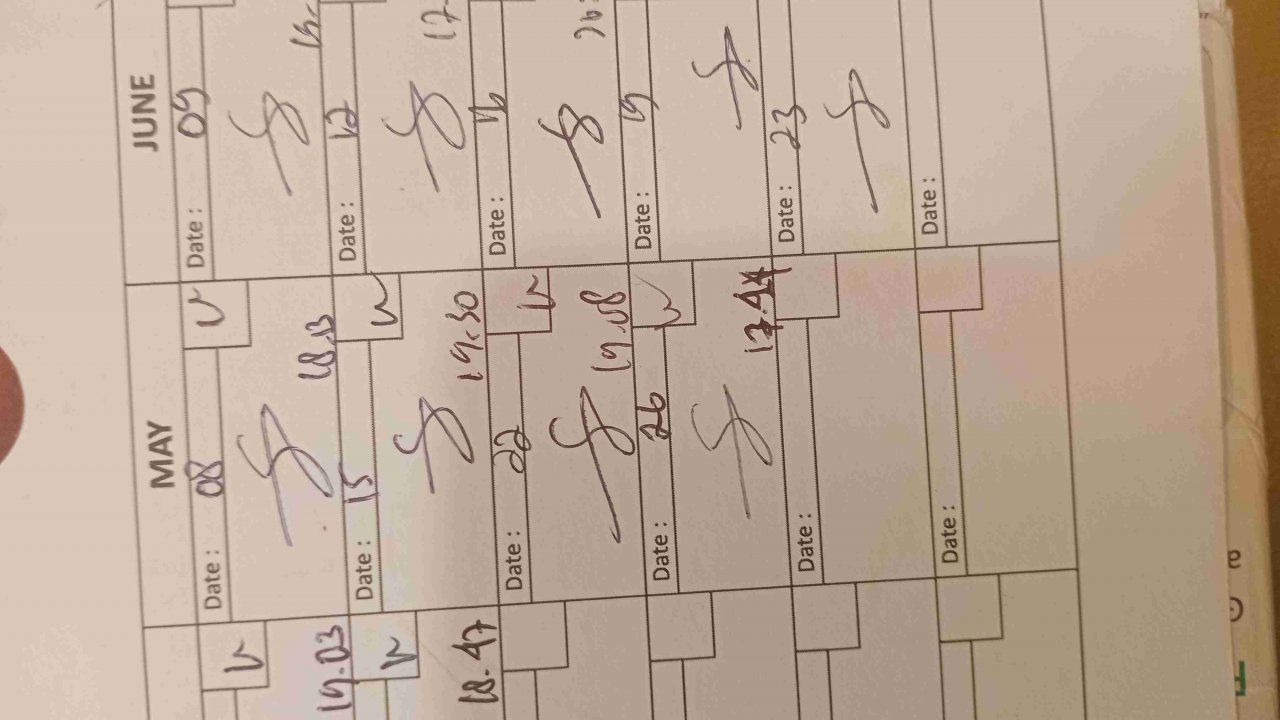 MAY JUNE
Date : 08 Date : 09
19.03 18.13
Date : 15 Date : 12
18.47 19.30
Date : 22 Date : 16
19.08
Date : 26 Date : 19
17.44
Date : Date : 23
Date : Date :